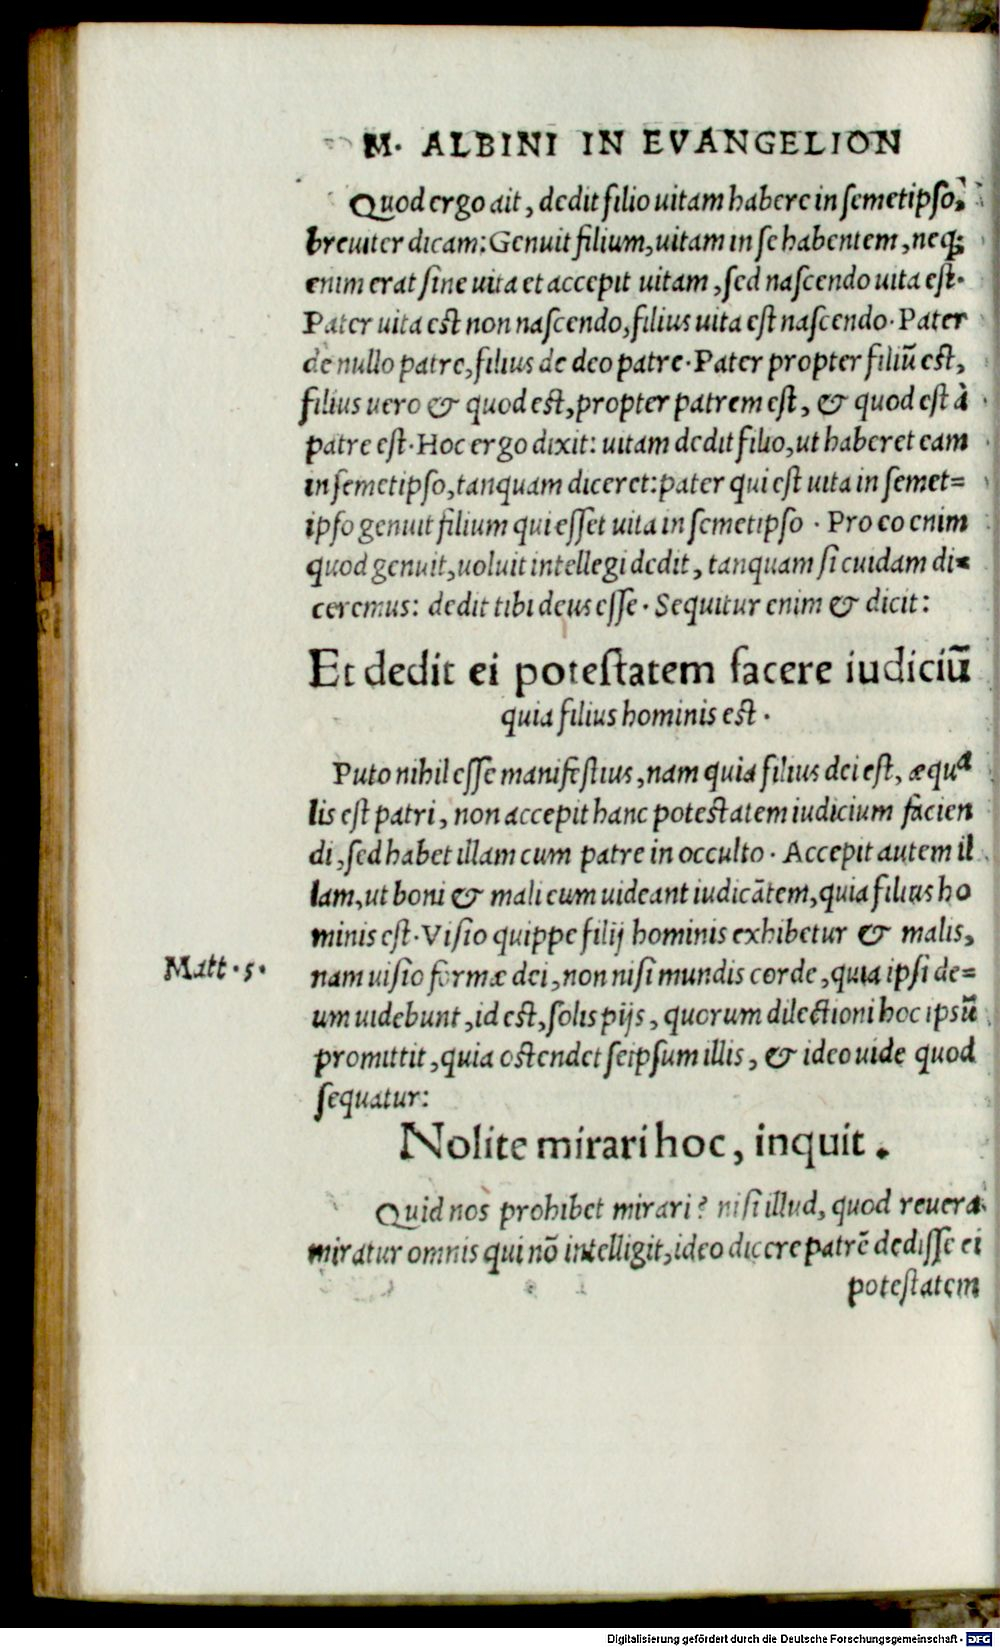 M. ALBINI IN EVANGELION
Quod ergo ait, dedit filio uitam habere in semetipso,
breuiter dicam: Genuit filium, uitam in se habentem, neq;
enim erat sine uita et accepit uitam, sed nascendo uita est.
Pater uita est non nascendo, filius uita est nascendo. Pater
de nullo patre, filius de deo patre. Pater propter filiū est,
filius uero & quod est, propter patrem est, & quod est à
patre est. Hoc ergo dixit: uitam dedit filio, ut haberet eam
in semetipso, tanquam diceret: pater qui est uita in semet=
ipso genuit filium qui esset uita in semetipso. Pro eo enim
quod genuit, uoluit intellegi dedit, tanquam si cuidam di=
ceremus: dedit tibi deus esse. Sequitur enim & dicit:
Et dedit ei potestatem facere iudiciū
quia filius hominis est.
Puto nihil esse manifestius, nam quia filius dei est, æqua
lis est patri, non accepit hanc potestatem iudicium facien
di, sed habet illam cum patre in occulto. Accepit autem il
lam, ut boni & mali eum uideant iudicātem, quia filius ho
minis est. Visio quippe filij hominis exhibetur & malis,
Matt. 5. nam uisio formæ dei, non nisi mundis corde, quia ipsi de=
um uidebunt, id est, solis pijs, quorum dilectioni hoc ipsū
promittit, quia ostendet seipsum illis, & ideo uide quod
sequatur:
Nolite mirari hoc, inquit.
Quid nos prohibet mirari? nisi illud, quod reuera
miratur omnis qui nō intelligit, ideo dicere patrē dedisse ei
potestatem
Digitalisierung gefördert durch die Deutsche Forschungsgemeinschaft - DFG